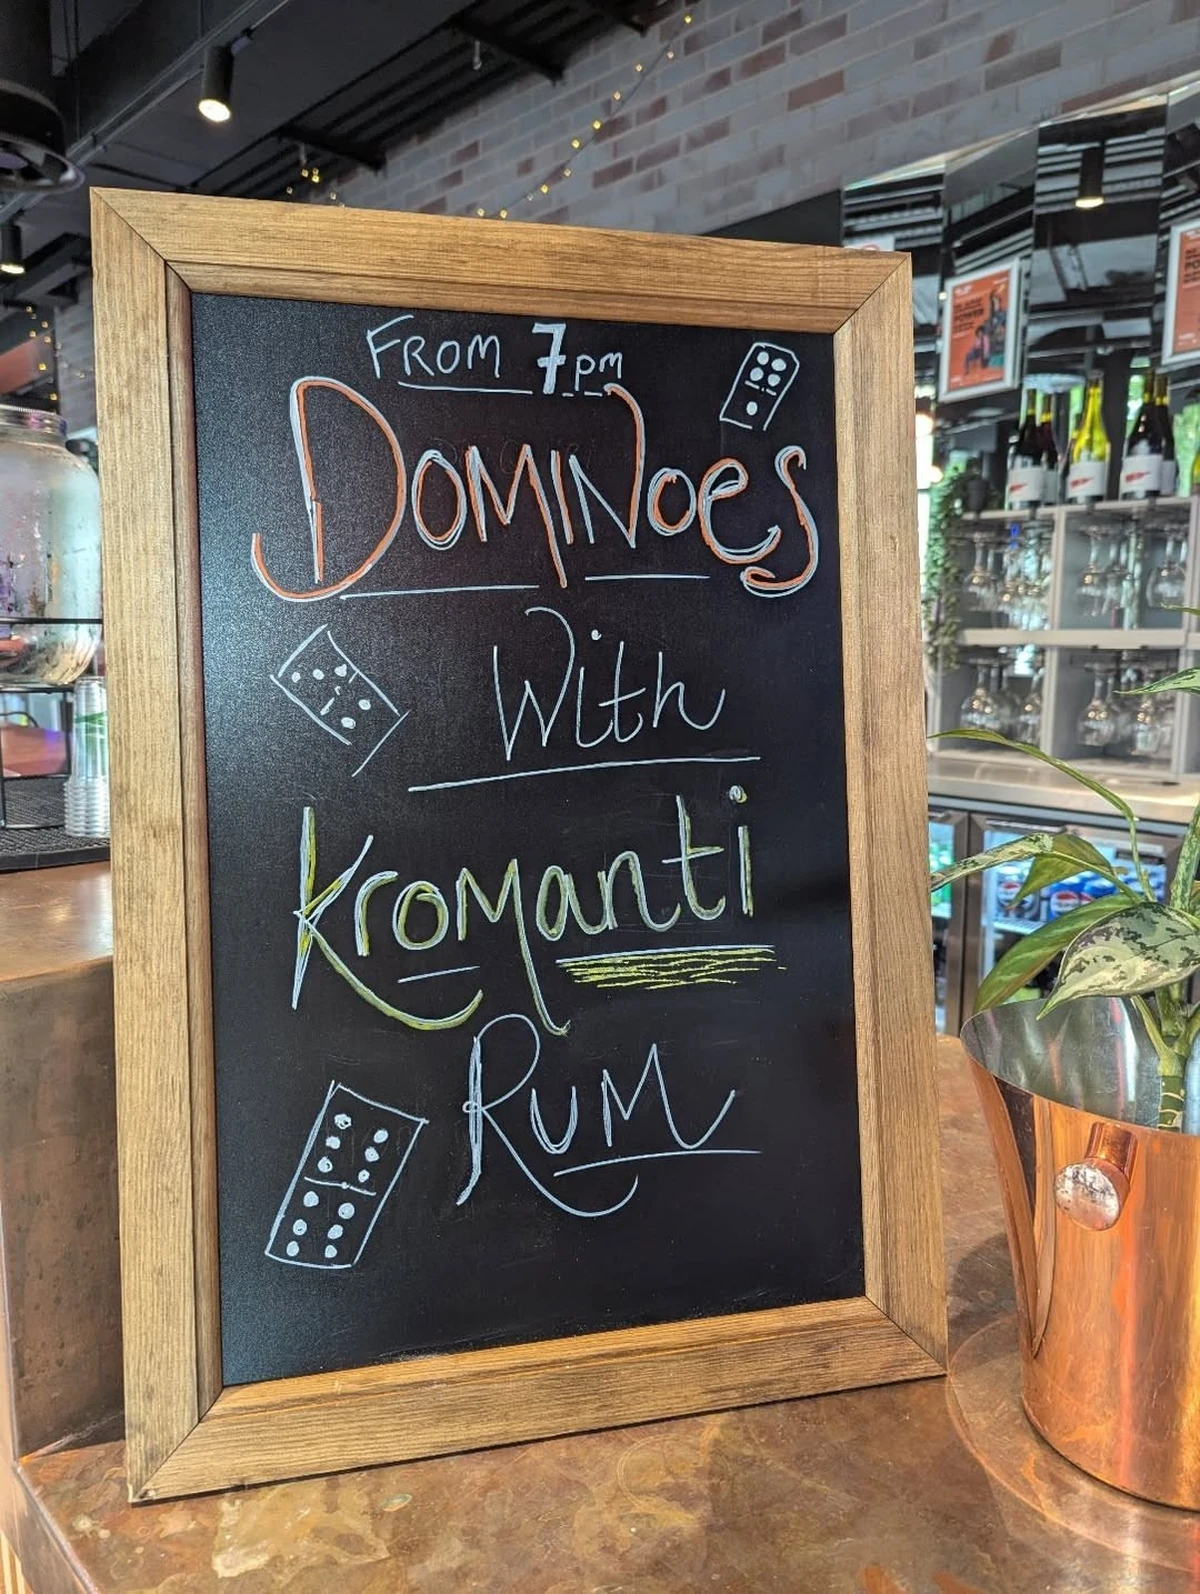 From 7pm
Dominoes
With
Kromanti
Rum
pepsi